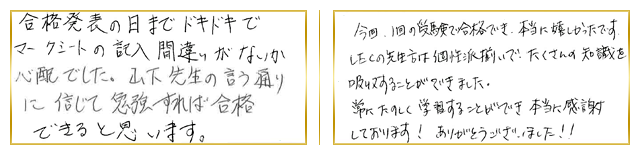 合格発表の日までドキドキで
マークシートの記入間違いがないか
心配でした。山下先生の言う通り
に信じて勉強すれば合格
できると思います。
今回、1回の受験で合格でき、本当に嬉しかったです
したくの先生方は個性派揃いで、たくさんの知識を
吸収することができました。
常にたのしく学習することができ本当に感謝
しております！ありがとうございました！！